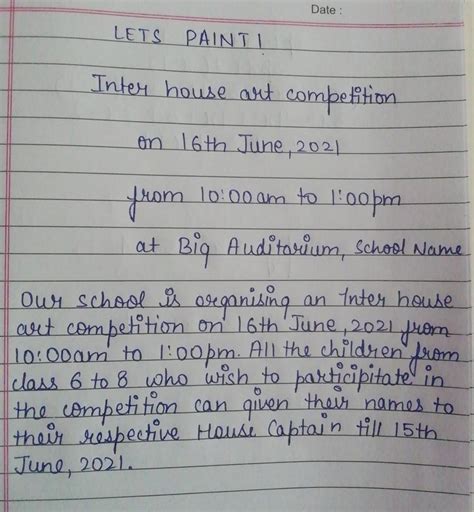 Date :
LETS PAINT!
Inter house art competition
on 16th June, 2021
from 10:00am to 1:00pm
at Big Auditorium, School Name
Our school is organising an Inter house
art competition on 16th June, 2021 from
10:00am to 1:00pm. All the children from
class 6 to 8 who wish to participitate in
the competition can given their names to
their respective House Captain till 15th
June, 2021.